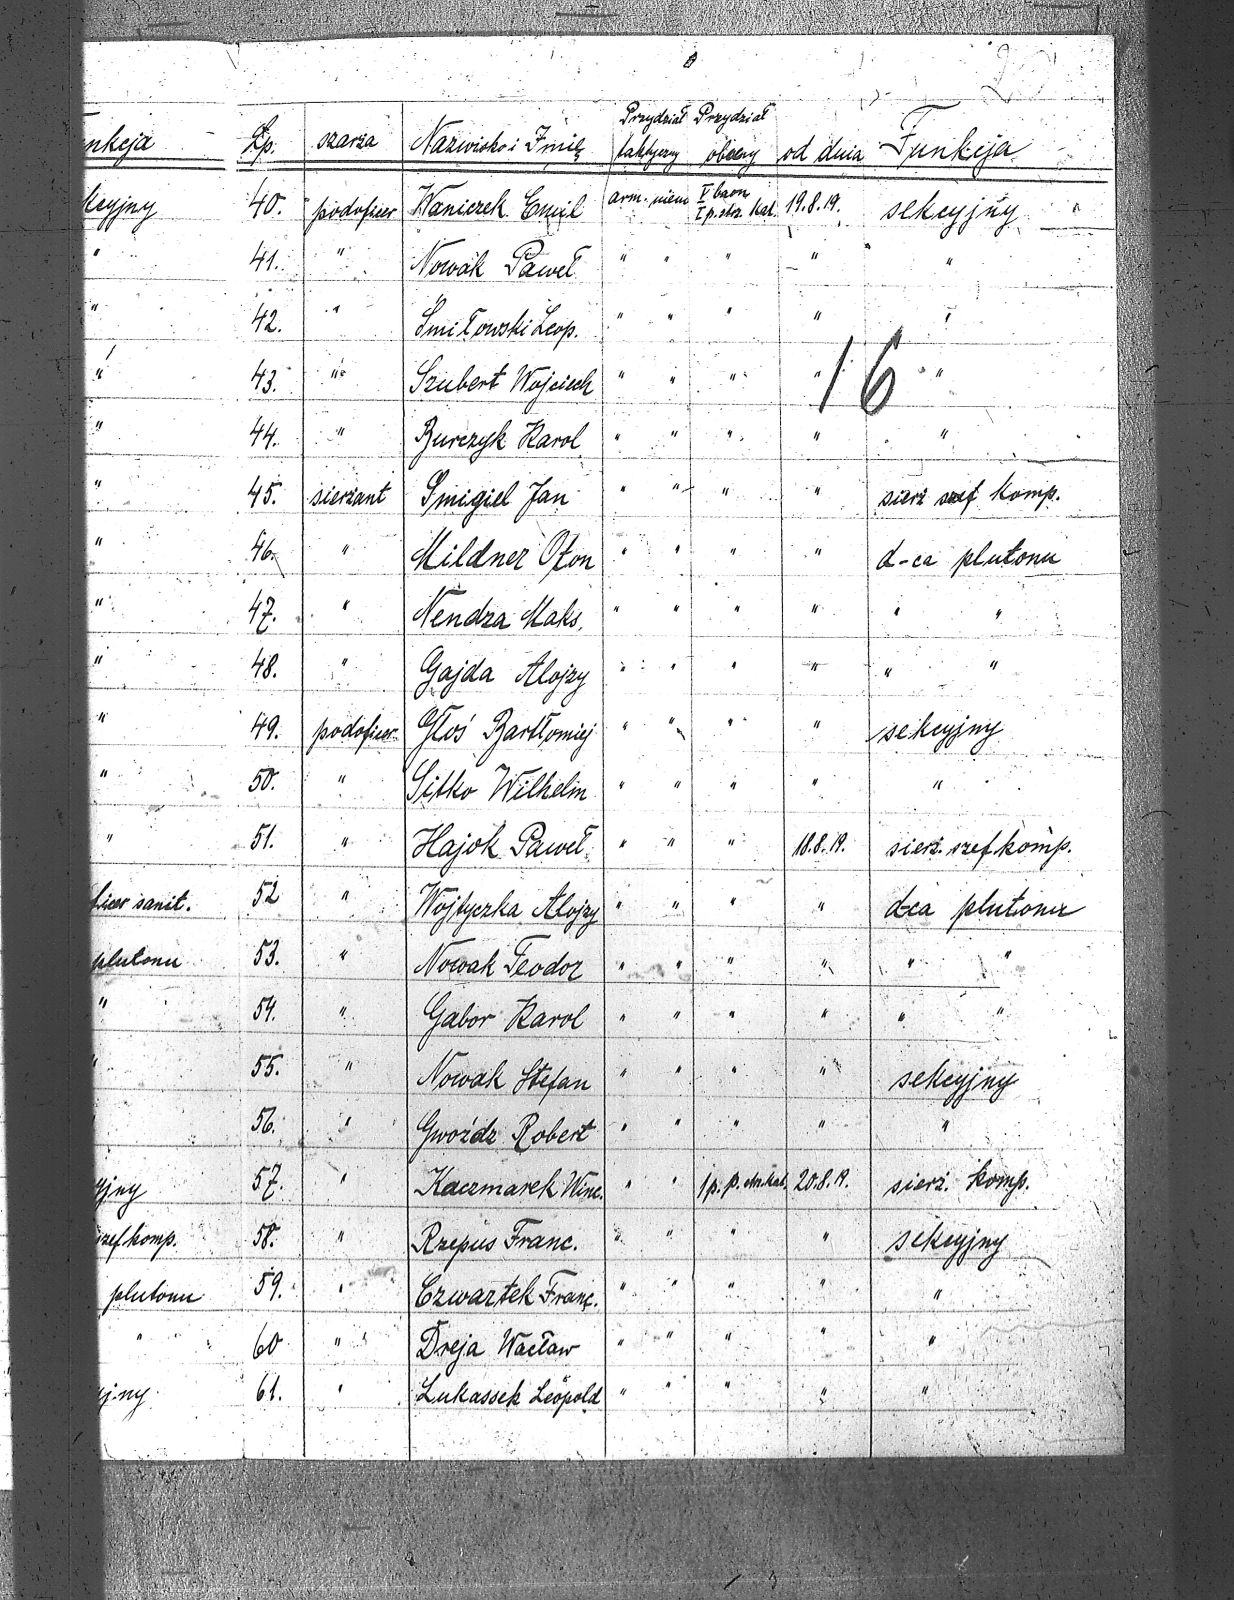 nkcja Lp. szarża Nazwisko i Imię Przydział taktyczny Przydział obecny od dnia Funkcja
kcyjny 40. podoficer Waniczek Emil arm. niem V baon I p. strz. Kat. 19.8.19. sekcyjny
" 41. " Nowak Paweł " " " " "
" 42. " Smiłowski Leop. " " " " "
" 43. " Szubert Wojciech " " " " "
16
" 44. " Burczyk Karol " " " " "
" 45. sierżant Smigiel Jan " " " " sierż szef komp.
" 46. " Mildner Oton " " " " d-ca plutonu
" 47. " Nendza Maks. " " " " " "
" 48. " Gajda Alojzy " " " " " "
" 49. podoficer Głoś Bartłomiej " " " " sekcyjny
" 50. " Sitko Wilhelm " " " " "
" 51. " Hajok Paweł " " " 18.8.19. sierż. szef komp.
ficer sanit. 52 " Wojtyczka Alojzy " " " " d-ca plutonu
plutonu 53. " Nowak Teodor " " " " " "
" 54. " Gabor Karol " " " " " "
" 55. " Nowak Stefan " " " " sekcyjny
56. " Gwoźdź Robert " " " " "
yjny 57. " Kaczmarek Winc. " " 1 p. p. strz. kat. 20.8.19. sierż. komp.
szef komp. 58. " Rzepus Franc. " " " " sekcyjny
plutonu 59. " Czwartek Franc. " " " " "
" 60 " Dreja Wacław " " " " "
yj.ny 61. " Lukassek Leopold " " " " "